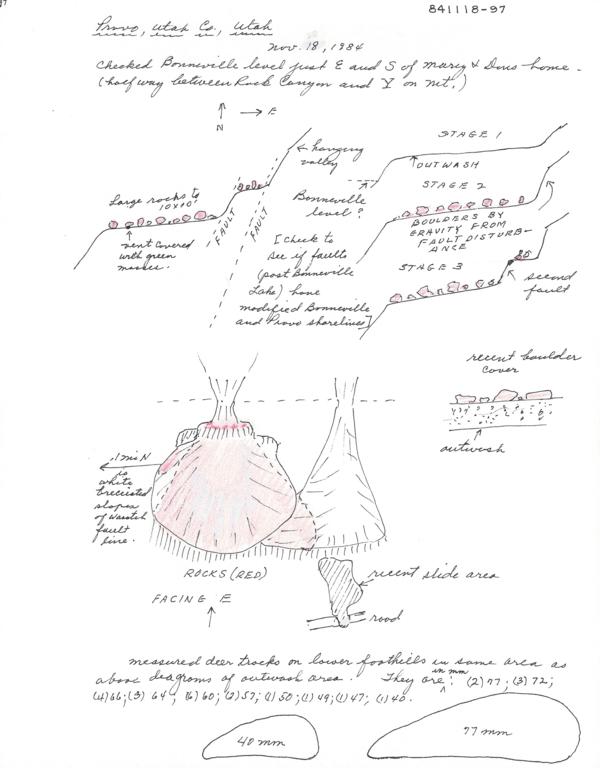 841118-97
Provo, Utah Co., Utah
Nov. 18, 1984
Checked Bonneville level just E and S of Mary & Dons home.
(half way between Rock Canyon and Y on Mt.)
N
E
hanging
valley
Large rocks to
10x10'
FAULT
FAULT
vent covered
with green
mosses.
Bonneville
level?
[Check to
see if faults
(post Bonneville
Lake) have
modified Bonneville
and Provo shorelines]
STAGE 1
OUTWASH
STAGE 2
BOULDERS BY
GRAVITY FROM
FAULT DISTURB-
ANCE
STAGE 3
second
fault
recent boulder
cover
outwash
.1 mi N
is
white
brecciated
slopes
of Wasatch
fault
line.
ROCKS (RED)
FACING E
recent slide area
road
measured deer tracks on lower foothills in same area as
above diagrams of outwash area. They are in mm: (2)77; (3)72;
(4)66; (3)64; (6)60; (2)57; (1)50; (1)49; (1)47; (1)40.
40 mm
77 mm